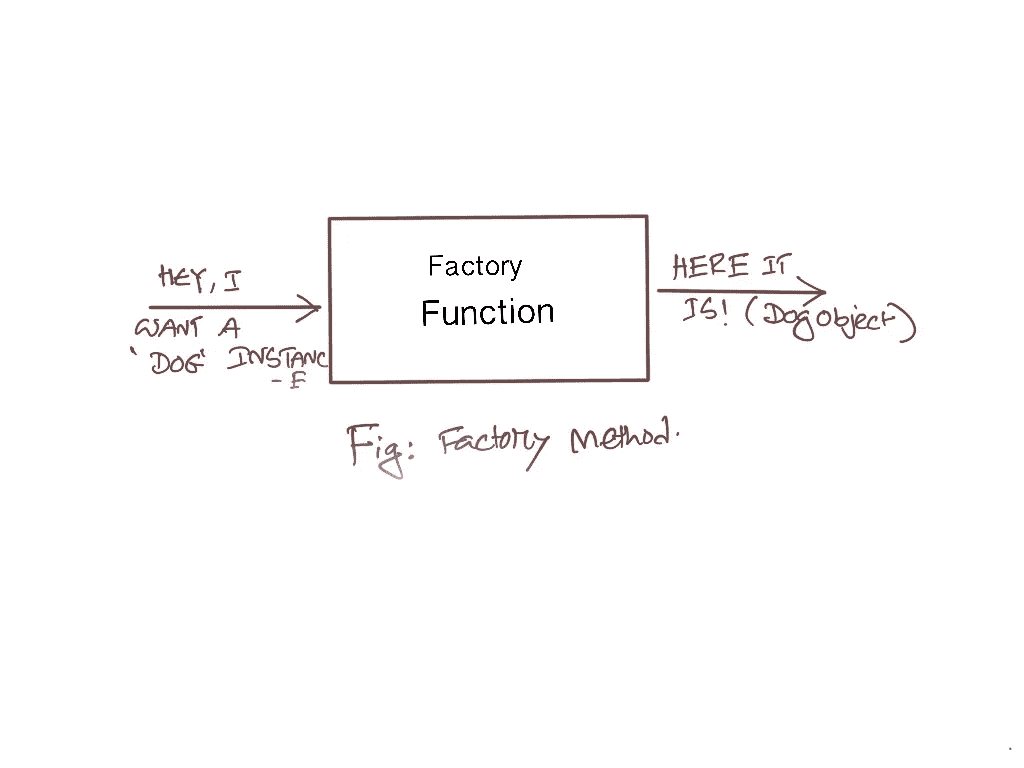 HEY, I
WANT A
'DOG' INSTANC
- E
Factory
Function
HERE IT
IS! (Dog Object)
Fig: Factory Method.